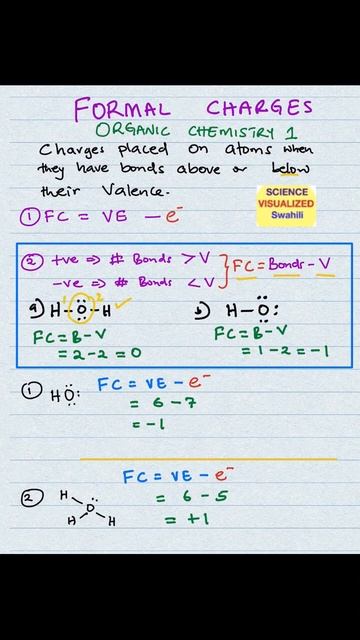 FORMAL CHARGES
ORGANIC CHEMISTRY 1
Charges placed on atoms when
they have bonds above or below
their Valence.
SCIENCE
VISUALIZED
Swahili
① FC = VE - e⁻
② +ve ⇒ # Bonds > V } FC = Bonds - V
-ve ⇒ # Bonds < V
a) H-Ö-H ✓
1 2
FC = B - V
= 2 - 2 = 0
b) H-Ö:
FC = B - V
= 1 - 2 = -1
① HÖ: FC = VE - e⁻
= 6 - 7
= -1
FC = VE - e⁻
② H O H H
= 6 - 5
= +1